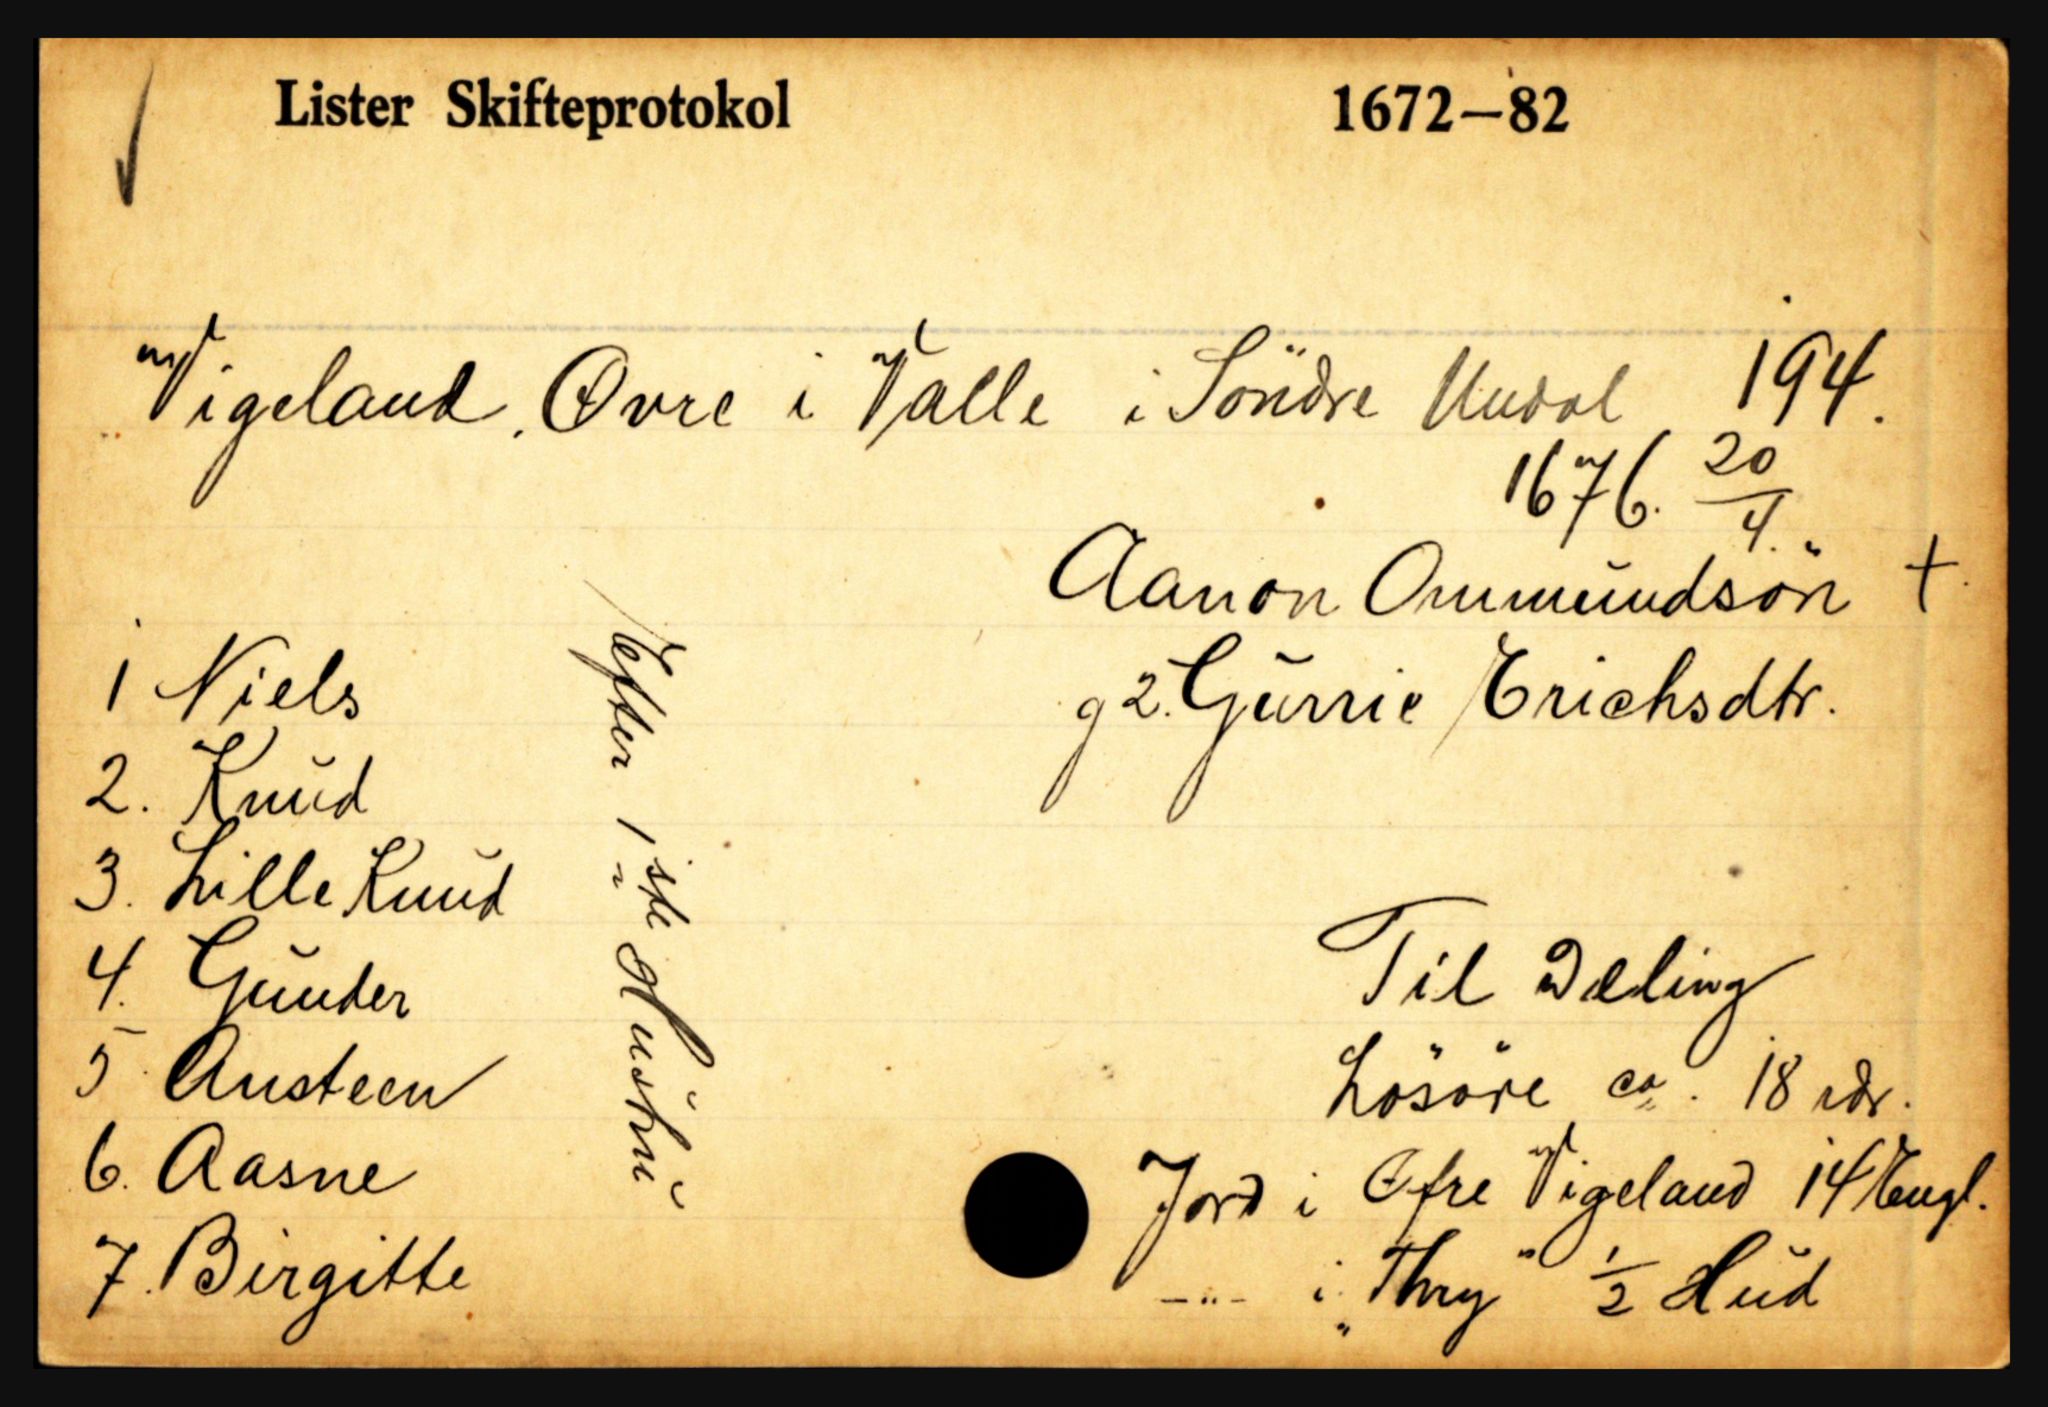 Lister Skifteprotokol 1672—82
Vigeland, Øvre i Valle i Söndre Undal 194.
1676. 20/4.
Aanon Ommundsön +
g 2. Gurrie Erichsdtr.
1 Niels
2. Knud
3. Lille Knud
4. Gunder
5 Austeen
6. Aasne
7. Birgitte
efter 1ste Hustru
Til Deling
Lösöre ca. 18 rdr.
Jord i Øfre Vigeland 14 Engl.
—"— i "Thry" 1/2 Hud